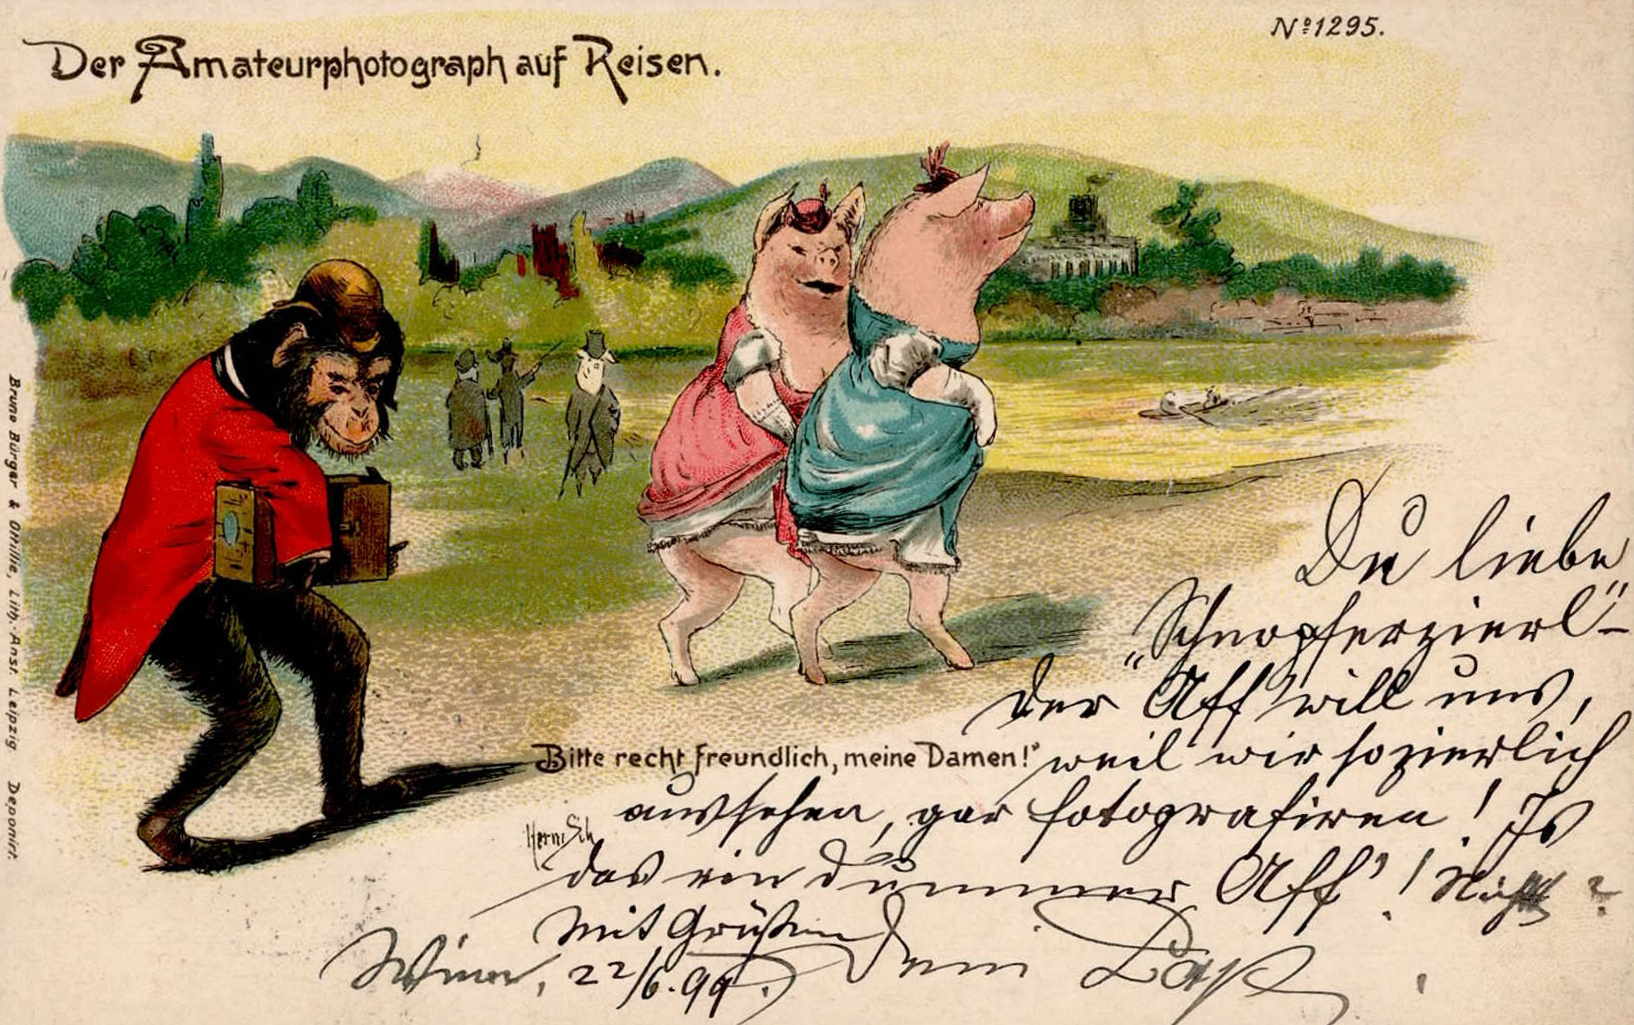 Nº 1295.
Der Amateurphotograph auf Reisen.
Bruno Bürger & Ottilie, Lith. Anst. Leipzig. Deponirt.
„Bitte recht freundlich, meine Damen!"
Du liebe
„Schnopferzierl" –
der Aff will uns,
weil wir so zierlich
aussehen, gar fotografiren! Is
das ein dummer Aff'! Nicht?
Mit Grüßen Dein
Wien, 22/6.99.